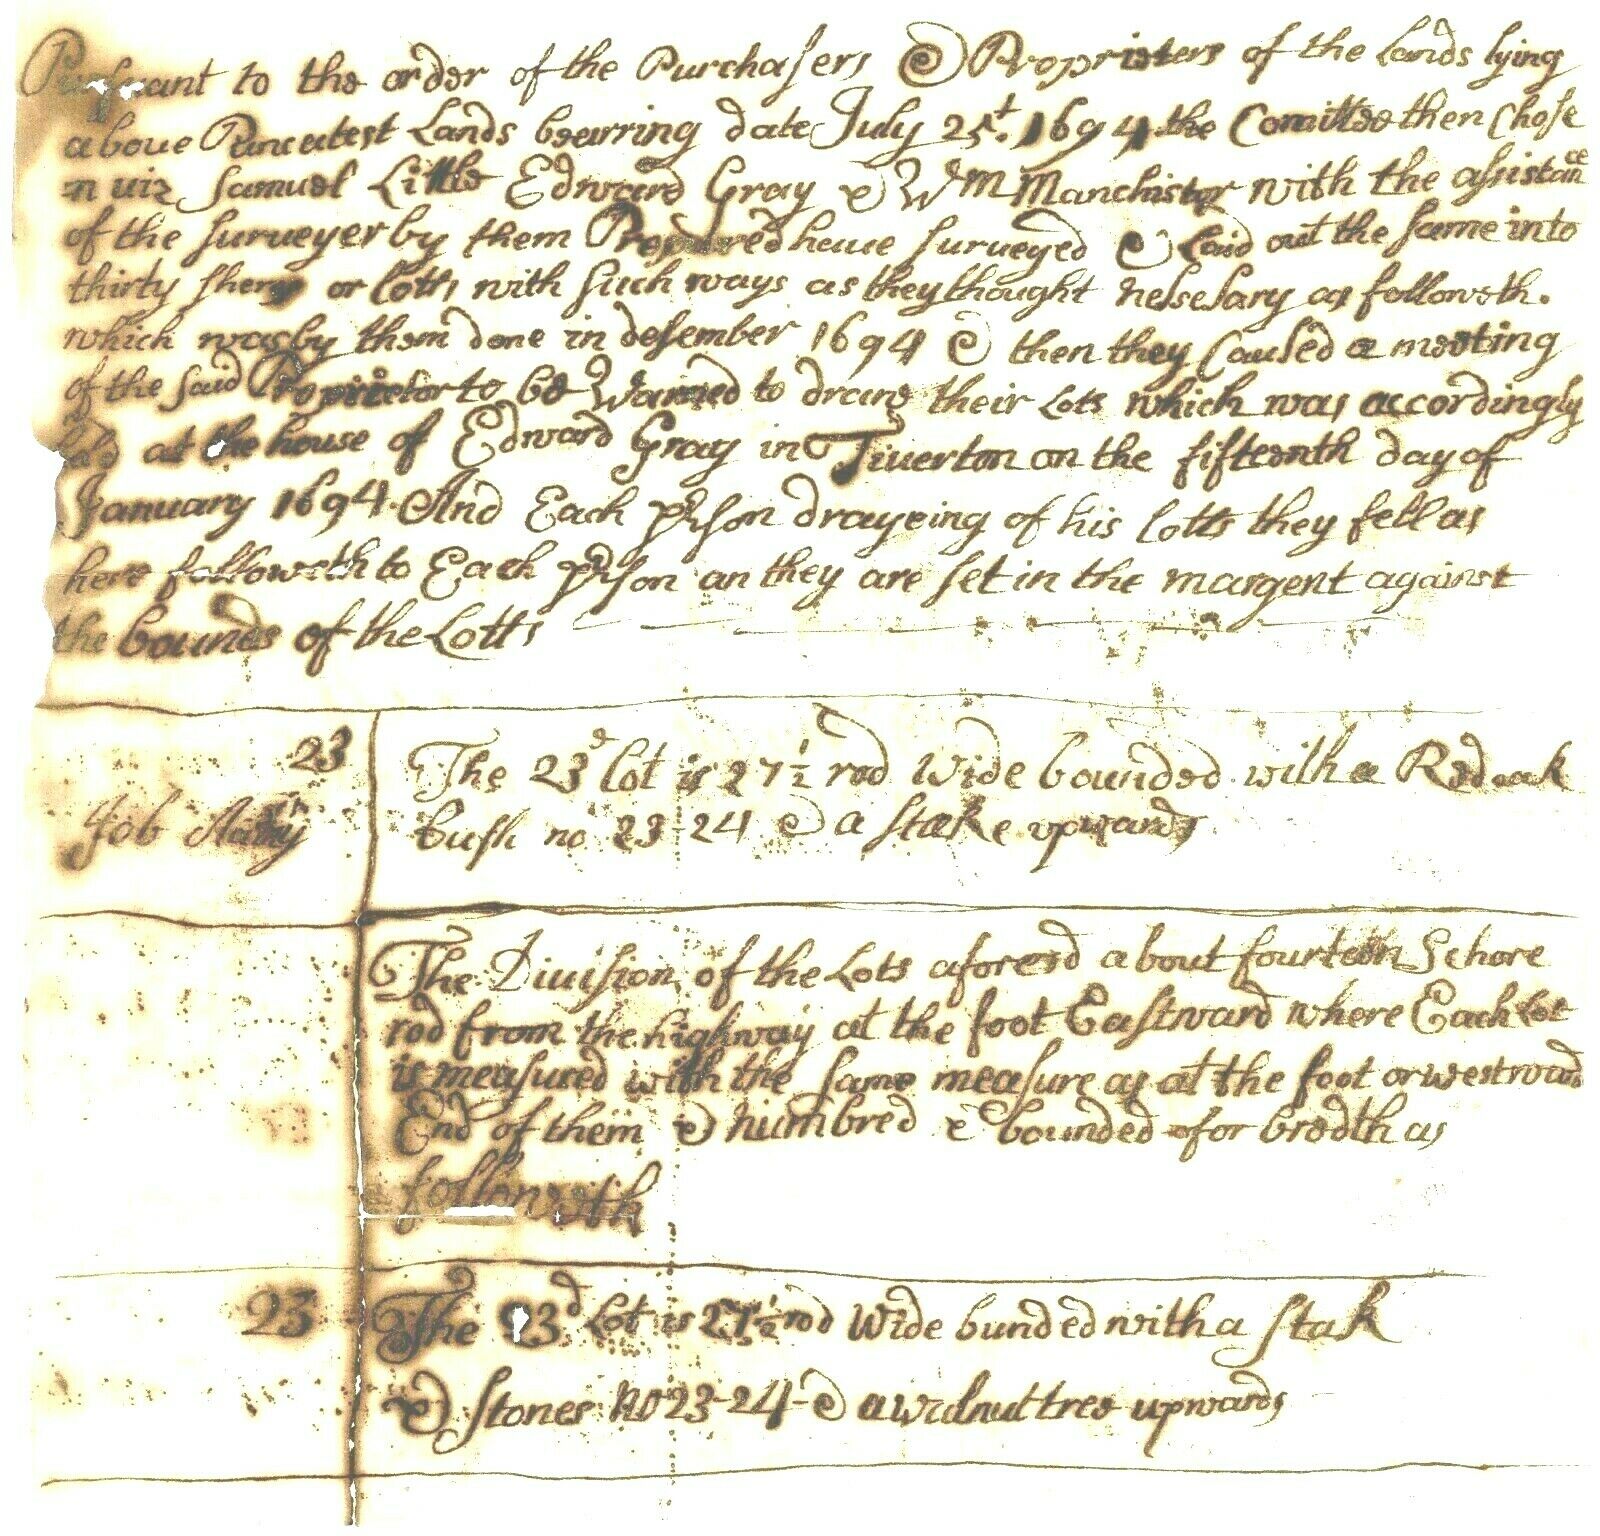 Pursuant to the order of the Purchasers & Propristers of the Lands lying
aboue Puncatest Lands beeurring date July 25t. 1694 the Comittee then Chose
n uiz Samuel Little Edward Gray & Wm Manchister with the assistance
of the surueyer by them Procured heue surueyed & Laid out the same into
thirty shers or Lotts with such ways as they thought nesseSary as followeth.
which was by them done in desember 1694 & then they Caused a meeting
of the said Proprietor to be Warned to draw their Lots which was accordingly
held at the house of Edward Gray in Tiuerton on the fifteenth day of
January 1694. And Each prson drayeing of his Lotts they fell as
here followeth to Each prson an they are set in the margent against
the bounds of the Lotts
23
The 23d Lot is 27 1/2 rod Wide bounded with a Red oak
Job
bush no 23-24 & a stake upwards
The Diuision of the Lots aforesd about fourteen Schore
rod from the highway at the foot Eastward where Each Lot
is measured with the same measure as at the foot or westward
End of them & numbred & bounded ofor bredth as
followeth
23
The 23d Lot is 27 1/2 rod Wide bunded with a Stak
& stones no 23-24-& a walnut tree upwards